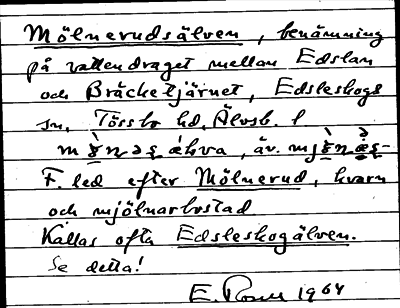 Mölnerudsälven, benämning
på vattendraget mellan Edslan
och Bräcketjärnet, Edsleskogs
sn, Tössbo hd, Älvsb. l
av.
F. led efter Mölnerud, kvarn
och mjölnarbostad
Kallas ofta Edsleskogälven.
Se detta!
E. 1964